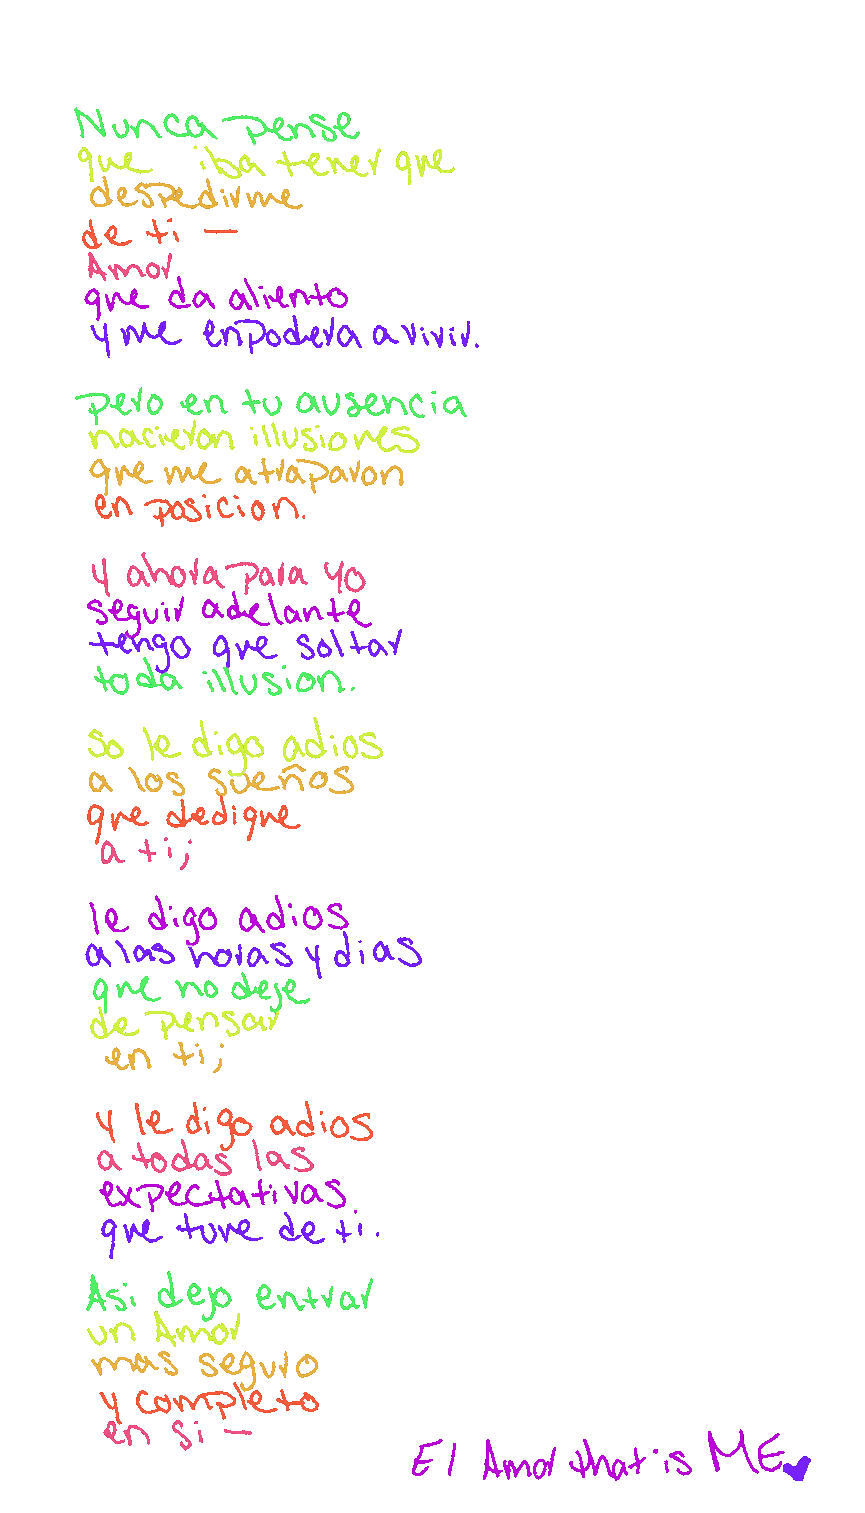 Nunca pense
que iba tener que
despedirme
de ti —
Amor
que da aliento
y me enpodera a vivir.
pero en tu ausencia
nacieron illusiones
que me atraparon
en posicion.
y ahora para yo
seguir adelante
tengo que soltar
toda illusion.
so le digo adios
a los sueños
que dedique
a ti;
le digo adios
a las horas y dias
que no deje
de pensar
en ti;
y le digo adios
a todas las
expectativas
que tuve de ti.
Asi dejo entrar
un Amor
mas seguro
y completo
en si —
El Amor that is ME